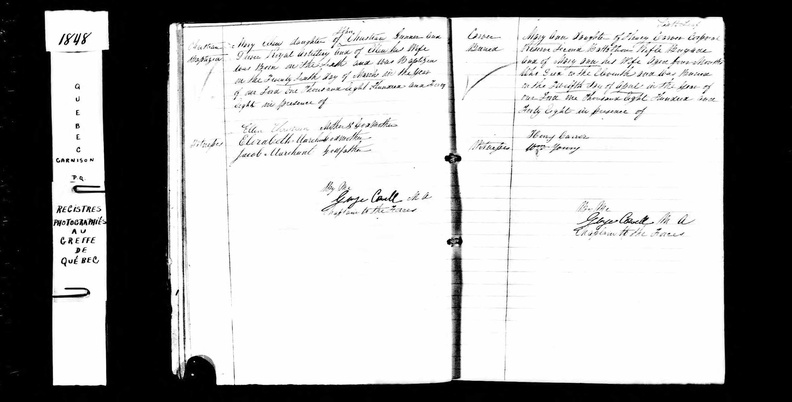 1848
QUEBEC
GARNISON
P.Q.
REGISTRES
PHOTOGRAPHIÉS
AU
GREFFE
DE
QUÉBEC
Baptized
Mary Ellen daughter of Christian Gunner and
Driver Royal Artillery and of Ellen his Wife
was Born on the and was Baptized
on the Twenty Sixth day of March in the year
of our Lord One Thousand Eight Hundred and Forty
Eight in presence of
Witnesses
Ellen Mother & Godmother
Elizabeth Marchant Godmother
Jacob Marchant Godfather
By Me
George Cowell M A
Chaplain to the Forces
Carson
Buried
Mary Ann daughter of Henry Carson Corporal
Reserve Second Battalion Rifle Brigade
and of Mary Ann his Wife Aged Months
who died on the Eleventh and was Buried
on the day of April in the year of
our Lord One Thousand Eight Hundred and
Forty Eight in presence of
Witnesses
Henry Carson
Wm Young
By Me
George Cowell M A
Chaplain to the Forces